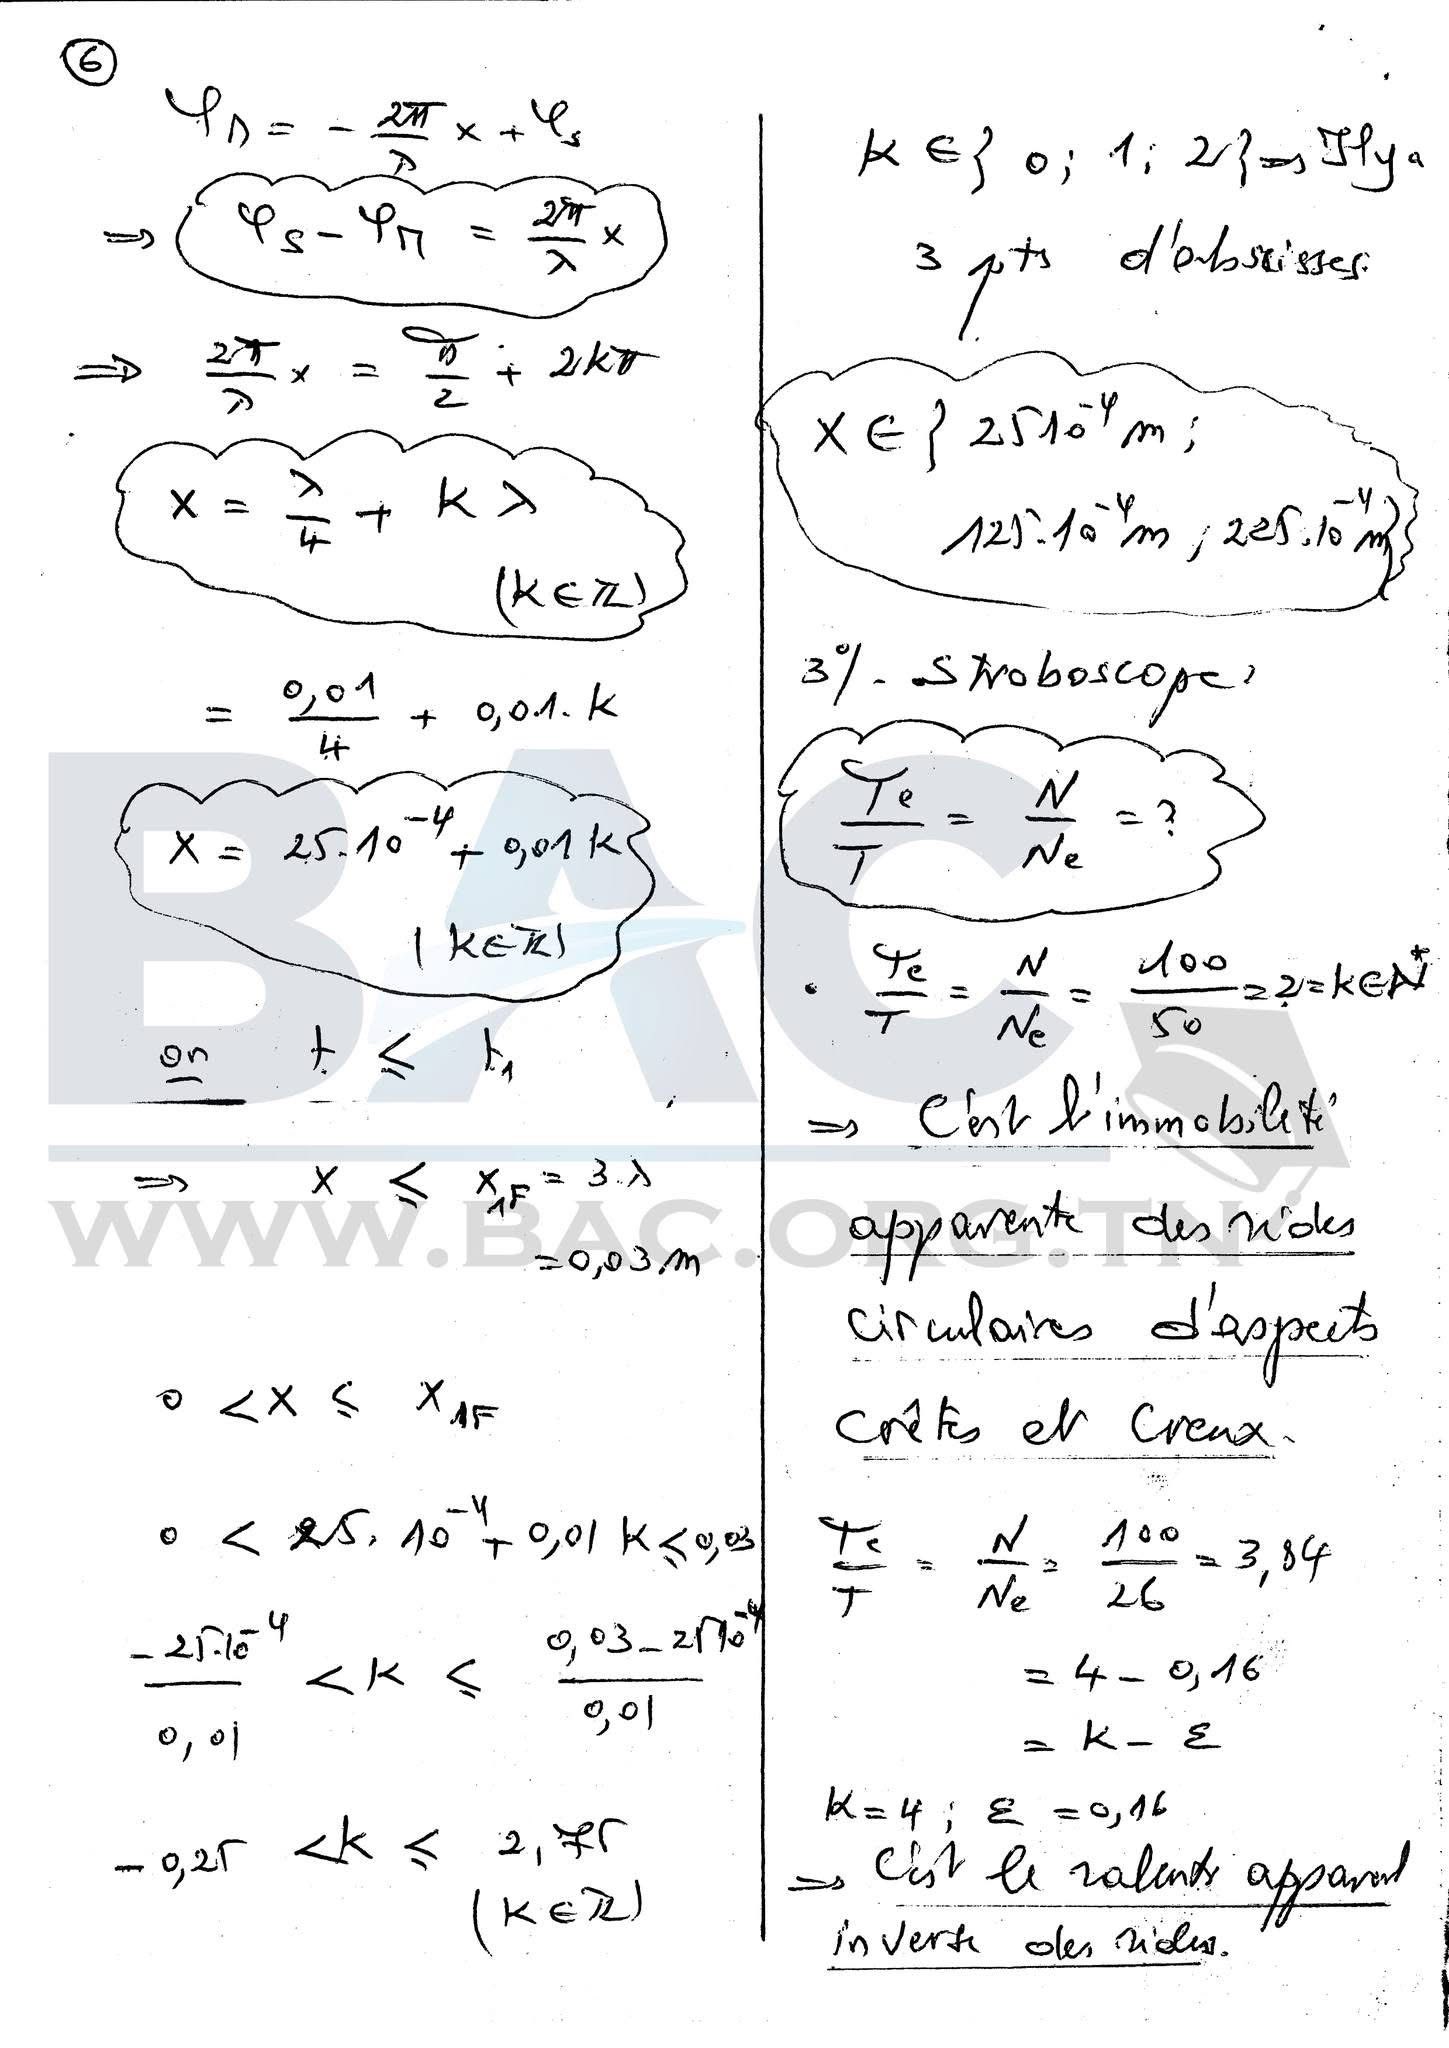 6
φ_M = - 2π/λ x + φ_s
⇒ φ_s - φ_M = 2π/λ x
⇒ 2π/λ x = π/2 + 2kπ
x = λ/4 + K λ
(K ∈ ℤ)
= 0,01/4 + 0,01. K
x = 25.10⁻⁴ + 0,01 K
(K ∈ ℤ)
on t ≤ t₁
⇒ x ≤ x_1F = 3.λ
= 0,03 m
0 < x ≤ x_1F
0 < 25. 10⁻⁴ + 0,01 K ≤ 0,03
-25.10⁻⁴/0,01 < K ≤ 0,03 - 25 10⁻⁴/0,01
- 0,25 < K ≤ 2,75
(K ∈ ℤ)
K ∈ } 0 ; 1 ; 2 } ⇒ Il y a
3 pts d'abscisses
x ∈ } 25 10⁻⁴ m ;
125.10⁻⁴ m ; 225.10⁻⁴ m }
3°/- Stroboscope :
Te/T = N/Ne = ?
• Te/T = N/Ne = 100/50 = 2 = K ∈ ℕ*
⇒ C'est l'immobilité
apparente des rides
circulaires d'aspects
crêtes et creux.
Te/T = N/Ne = 100/26 = 3,84
= 4 - 0,16
= K - ε
K = 4 ; ε = 0,16
⇒ C'est le ralenti apparent
inverse des rides.
BAC
WWW.BAC.ORG.TN